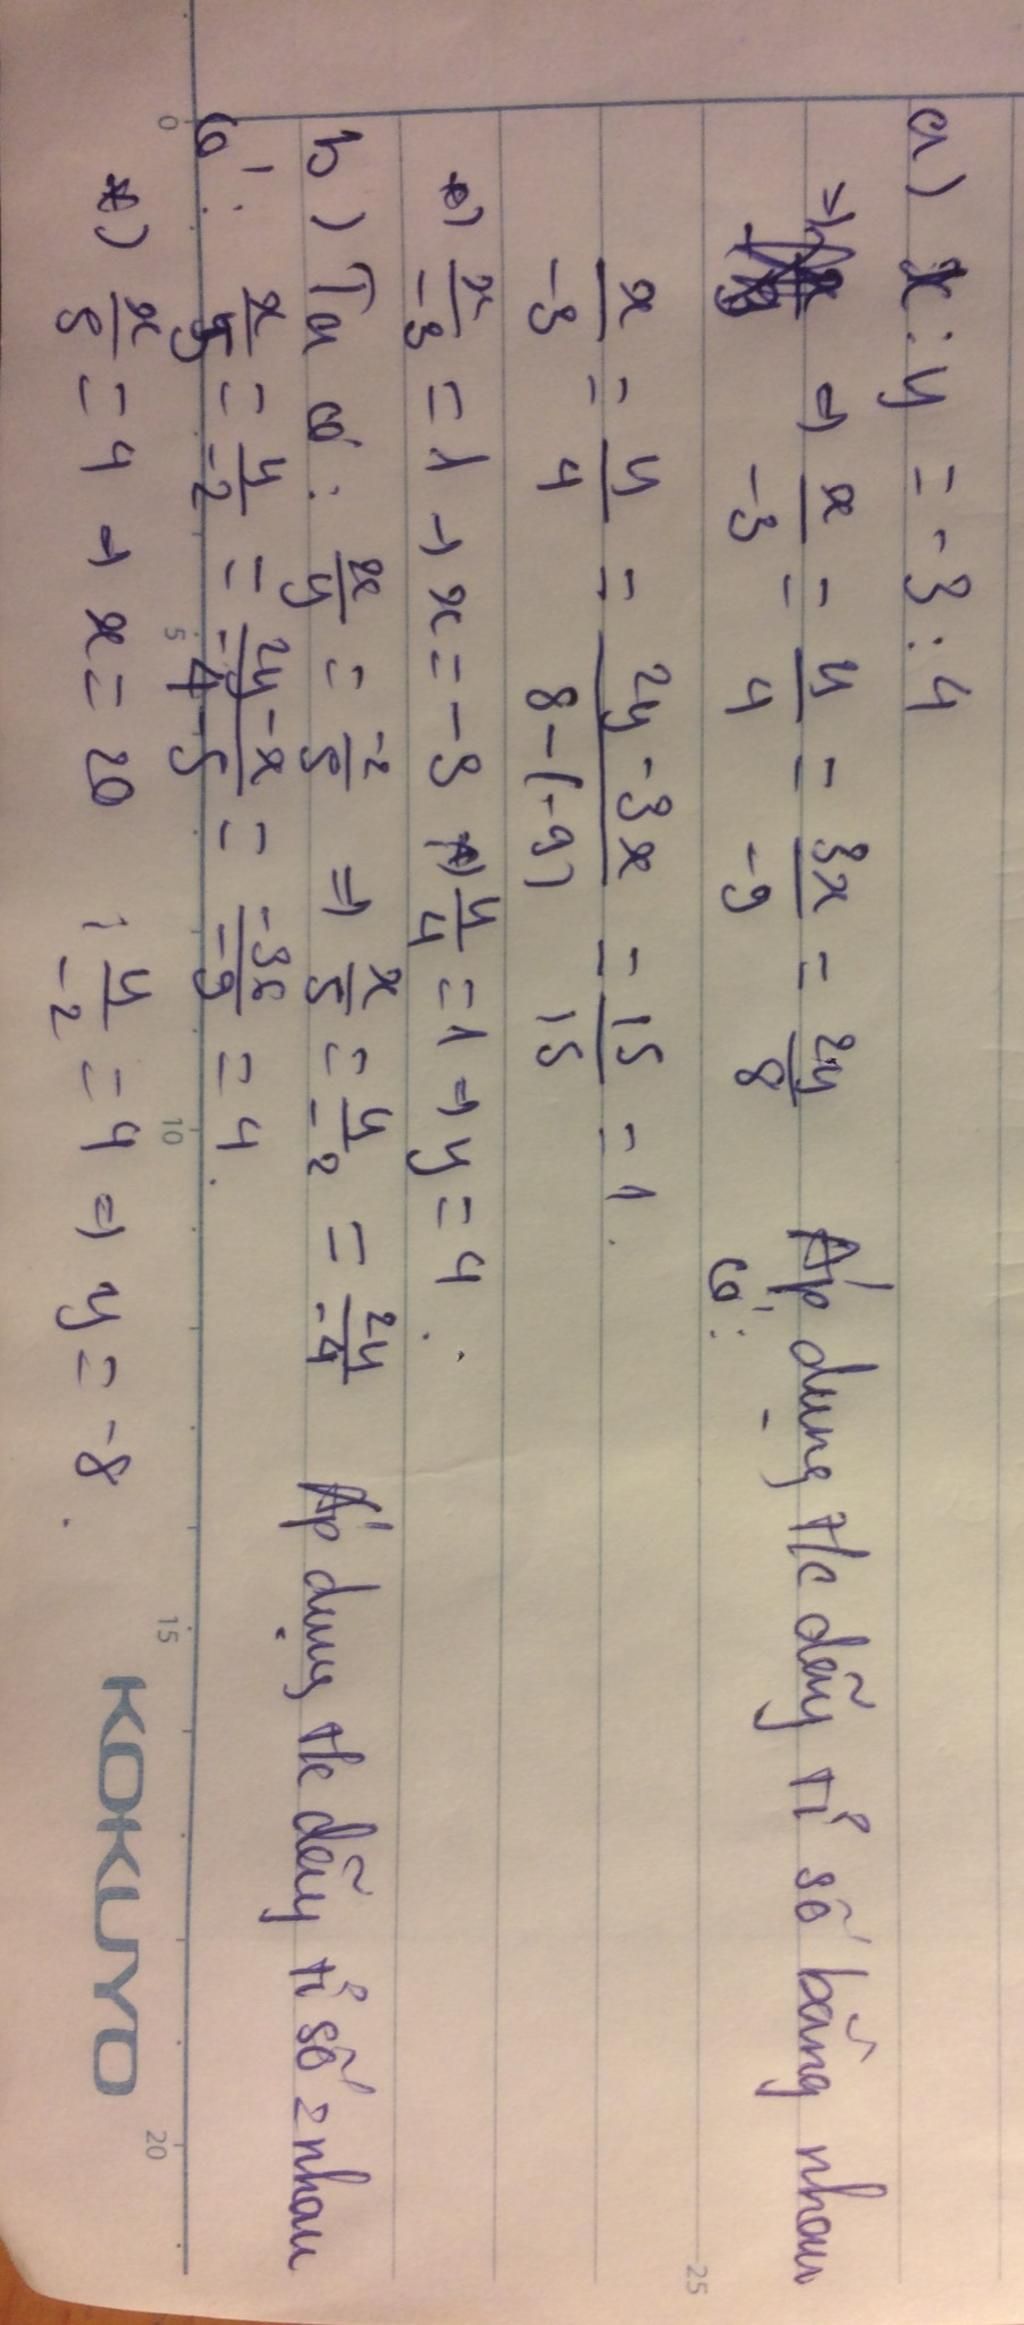 a) x : y = -3 : 4
=> x/-3 = y/4 = 3x/-9 = 2y/8 Áp dụng t/c dãy tỉ số bằng nhau
có:
x/-3 = y/4 = 2y-3x/8-(-9) = 15/15 = 1.
*) x/-3 = 1 => x = -3 *) y/4 = 1 => y = 4.
b) Ta có: x/y = -2/5 => x/5 = y/-2 = 2y/-4 Áp dụng t/c dãy tỉ số = nhau
có: x/5 = y/-2 = 2y-x/-4-5 = -36/-9 = 4.
*) x/5 = 4 => x = 20 ; y/-2 = 4 => y = -8.
0 5 10 15 20
25
KOKUYO